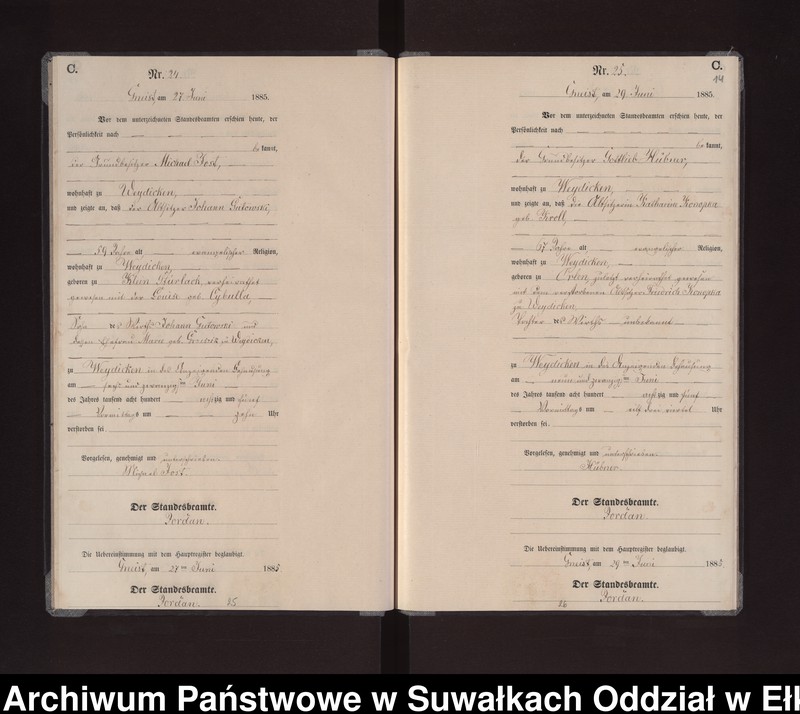 C.
Nr. 24.
Gneist, am 27. Juni 1885.
Vor dem unterzeichneten Standesbeamten erschien heute, der
Persönlichkeit nach
bekannt,
der Grundbesitzer Michael Jost,
wohnhaft zu Weydicken,
und zeigte an, daß der Altsitzer Johann Gutowski,
59 Jahre alt evangelischer Religion,
wohnhaft zu Weydicken,
geboren zu Klein verheirathet
gewesen mit der Louise geb. Cybulla,
Sohn des Wirths Johann Gutowski und
dessen Ehefrau Marie geb.
zu Weydicken in des Anzeigenden Behausung
am sechs und zwanzigten Juni
des Jahres tausend acht hundert achtzig und fünf
Vormittags um zehn Uhr
verstorben sei.
Vorgelesen, genehmigt und unterschrieben.
Michael Jost.
Der Standesbeamte.
Jordan.
Die Uebereinstimmung mit dem Hauptregister beglaubigt.
Gneist, am 27ten Juni 1885.
Der Standesbeamte.
Jordan.
C.
14
Nr. 25.
Gneist, am 29. Juni 1885.
Vor dem unterzeichneten Standesbeamten erschien heute, der
Persönlichkeit nach
bekannt,
der Grundbesitzer Gottlieb Hübner,
wohnhaft zu Weydicken,
und zeigte an, daß die Altsitzerin Katharine Konopka
geb. Kroll,
67 Jahre alt evangelischer Religion,
wohnhaft zu Weydicken,
geboren zu Orlen, zuletzt verheirathet gewesen
mit dem verstorbenen Altsitzer Friedrich Konopka
zu Weydicken
Tochter des Wirths unbekannt
zu Weydicken in des Anzeigenden Behausung
am neun und zwanzigten Juni
des Jahres tausend acht hundert achtzig und fünf
Vormittags um Uhr
verstorben sei.
Vorgelesen, genehmigt und unterschrieben.
Hübner.
Der Standesbeamte.
Jordan.
Die Uebereinstimmung mit dem Hauptregister beglaubigt.
Gneist, am 29ten Juni 1885.
Der Standesbeamte.
Jordan.
Archiwum Państwowe w Suwałkach Oddział w Ełk